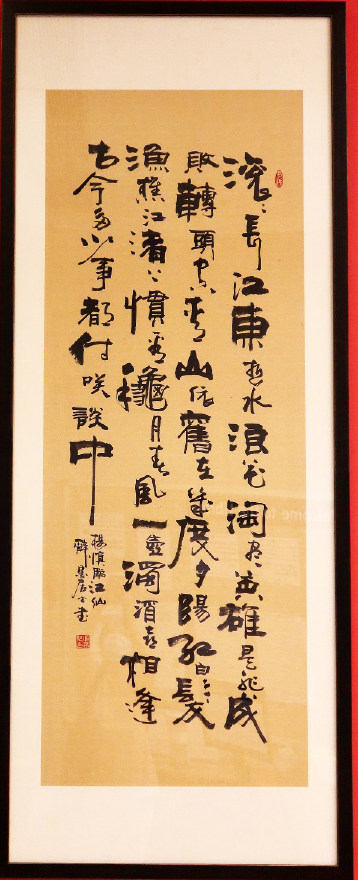 滚〻長江東逝水浪花淘尽英雄是非成
敗轉頭空青山依舊在幾度夕陽紅白髮
漁樵江渚上慣看穐月春風一壺濁酒喜相逢
古今多少事都付咲談中
楊慎臨江仙
居士書